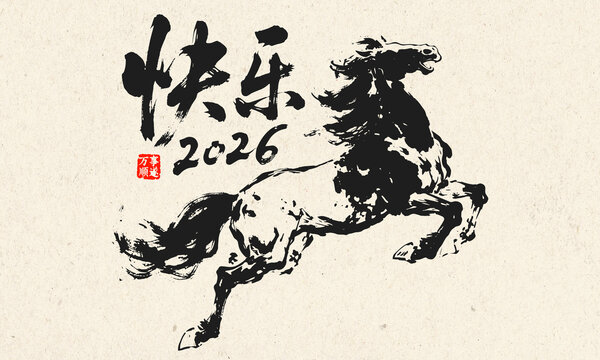 快乐
2026
万事
顺遂